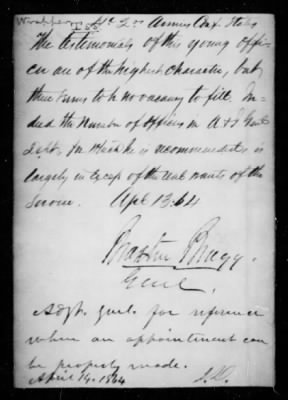 Wrapper
Hd Qrs Armies Conf. States
The testimonials of this young offi-
cer are of the highest character, but
there seems to be no vacancy to fill. In-
deed the number of officers in A & I Genl
Dept, for which he is recommended is
largely in excess of the real wants of the
Service. Apl 13. 64
Braxton Bragg.
Genl.
Adjt. genl. for reference
when an appointment can
be properly made.
April 14, 1864 J.D.